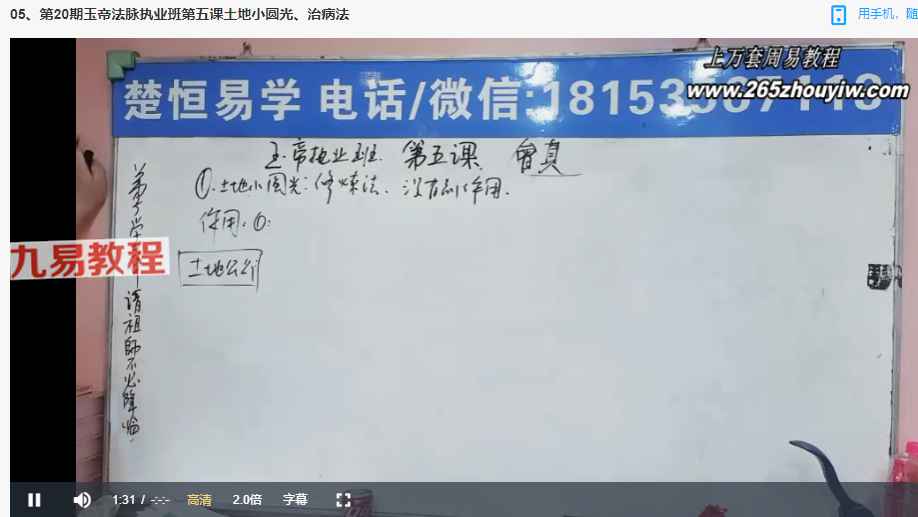 05、第20期玉帝法脉执业班第五课土地小圆光、治病法
用手机，随
上万套周易教程
www.265zhouyiw.com
楚恒易学 电话/微信:18153
玉帝执业班 第五课 曾真
①.土地小圆光:修炼法、没有副作用.
作用:①:
土地公
九易教程
弟子学
请祖师不必降临
1:31 / -:-:-
高清
2.0倍
字幕